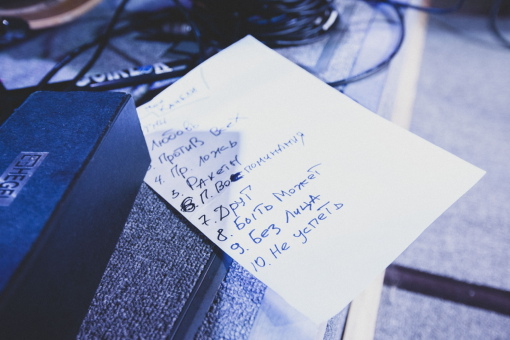 Любовь
Против всех
4. Пр. ложь
5. Ракеты
6. П. Воспоминания
7. Друг
8. Быть может
9. Без лица
10. Не успеть